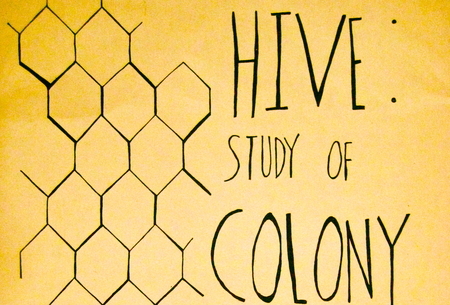 HIVE:
STUDY OF
COLONY